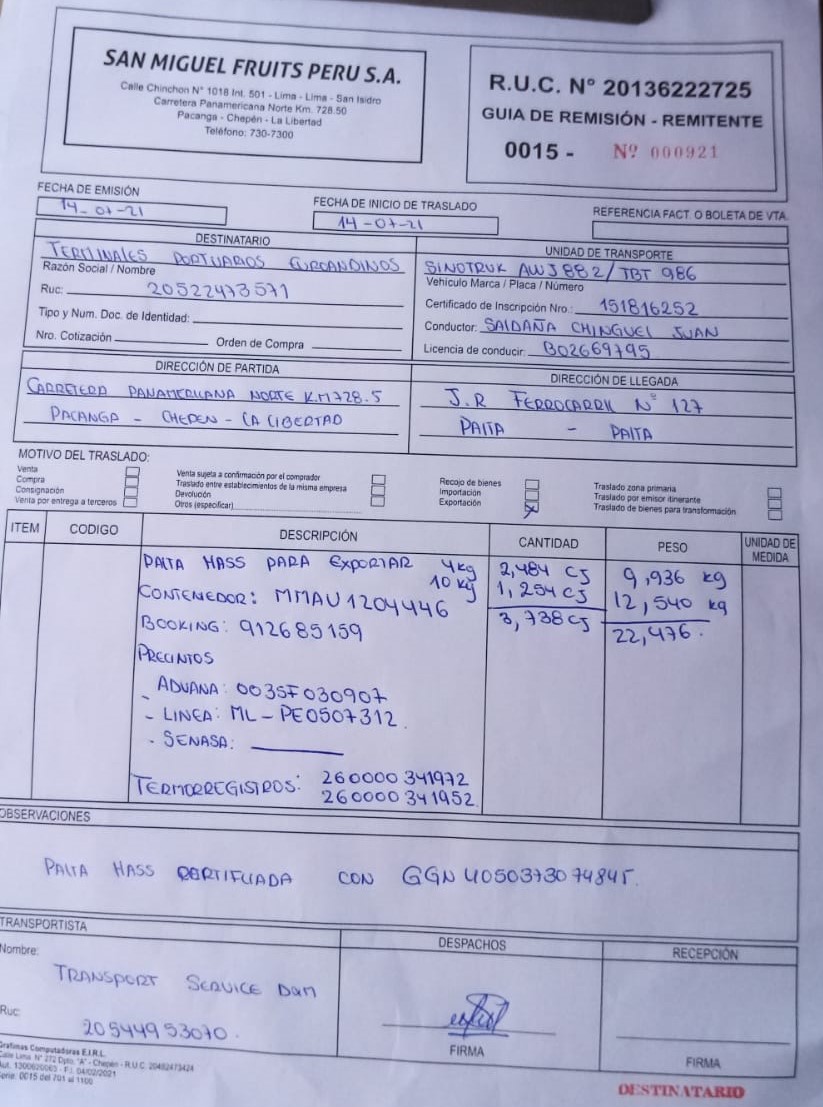 SAN MIGUEL FRUITS PERU S.A.
Calle Chinchon N° 1018 Int. 501 - Lima - Lima - San Isidro
Carretera Panamericana Norte Km. 728.50
Pacanga - Chepén - La Libertad
Teléfono: 730-7300
R.U.C. N° 20136222725
GUIA DE REMISIÓN - REMITENTE
0015 - Nº 000921
FECHA DE EMISIÓN
14-07-21
FECHA DE INICIO DE TRASLADO
14-07-21
REFERENCIA FACT. O BOLETA DE VTA.
DESTINATARIO
TERMINALES PORTUARIOS EUROANDINOS
Razón Social / Nombre
Ruc: 20522473571
Tipo y Num. Doc. de Identidad:
Nro. Cotización Orden de Compra
UNIDAD DE TRANSPORTE
SINOTRUK AWJ882/TBT 986
Vehículo Marca / Placa / Número
Certificado de Inscripción Nro.: 151816252
Conductor: SALDAÑA CHINGUEL JUAN
Licencia de conducir: B02669795
DIRECCIÓN DE PARTIDA
CARRETERA PANAMERICANA NORTE K.M 728.5
PACANGA - CHEPEN - LA LIBERTAD
DIRECCIÓN DE LLEGADA
J.R FERROCARRIL N° 127
PAITA - PAITA
MOTIVO DEL TRASLADO:
Venta
Compra
Consignación
Venta por entrega a terceros
Venta sujeta a confirmación por el comprador
Traslado entre establecimientos de la misma empresa
Devolución
Otros (especificar)
Recojo de bienes
Importación
Exportación X
Traslado zona primaria
Traslado por emisor itinerante
Traslado de bienes para transformación
ITEM CODIGO DESCRIPCIÓN CANTIDAD PESO UNIDAD DE MEDIDA
PALTA HASS PARA EXPORTAR 4kg 2,484 CJ 9,936 kg
10 kg 1,254 CJ 12,540 kg
CONTENEDOR: MMAU1204446 3,738 CJ 22,476.
BOOKING: 912685159
PRECINTOS
- ADUANA: 0035F030907
- LINEA: ML-PE0507312.
- SENASA:
TERMORREGISTROS: 260000341972
260000341952.
OBSERVACIONES
PALTA HASS CERTIFICADA CON GGN 4050373074845.
TRANSPORTISTA
Nombre:
TRANSPORT SERVICE Dan
Ruc:
20544953070.
DESPACHOS
FIRMA
RECEPCIÓN
FIRMA
Grafimas Computadoras E.I.R.L.
Calle Lima N° 272 Dpto. "A" - Chepén - R.U.C. 20482473424
Aut. 1300620063 - F.I. 04/02/2021
Serie: 0015 del 701 al 1100
DESTINATARIO